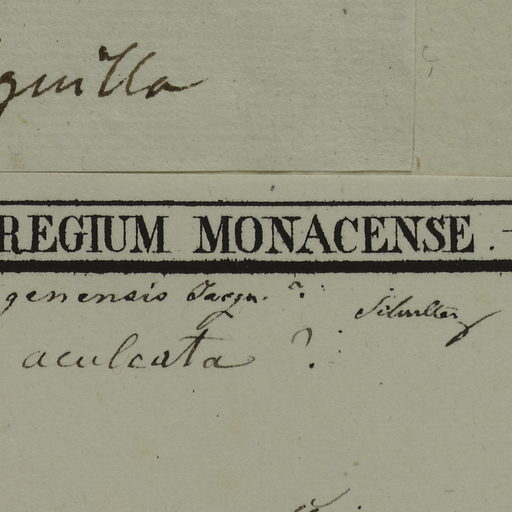 guilla
REGIUM MONACENSE.
genensis Jacqu. ?
Schultes
aculeata ?